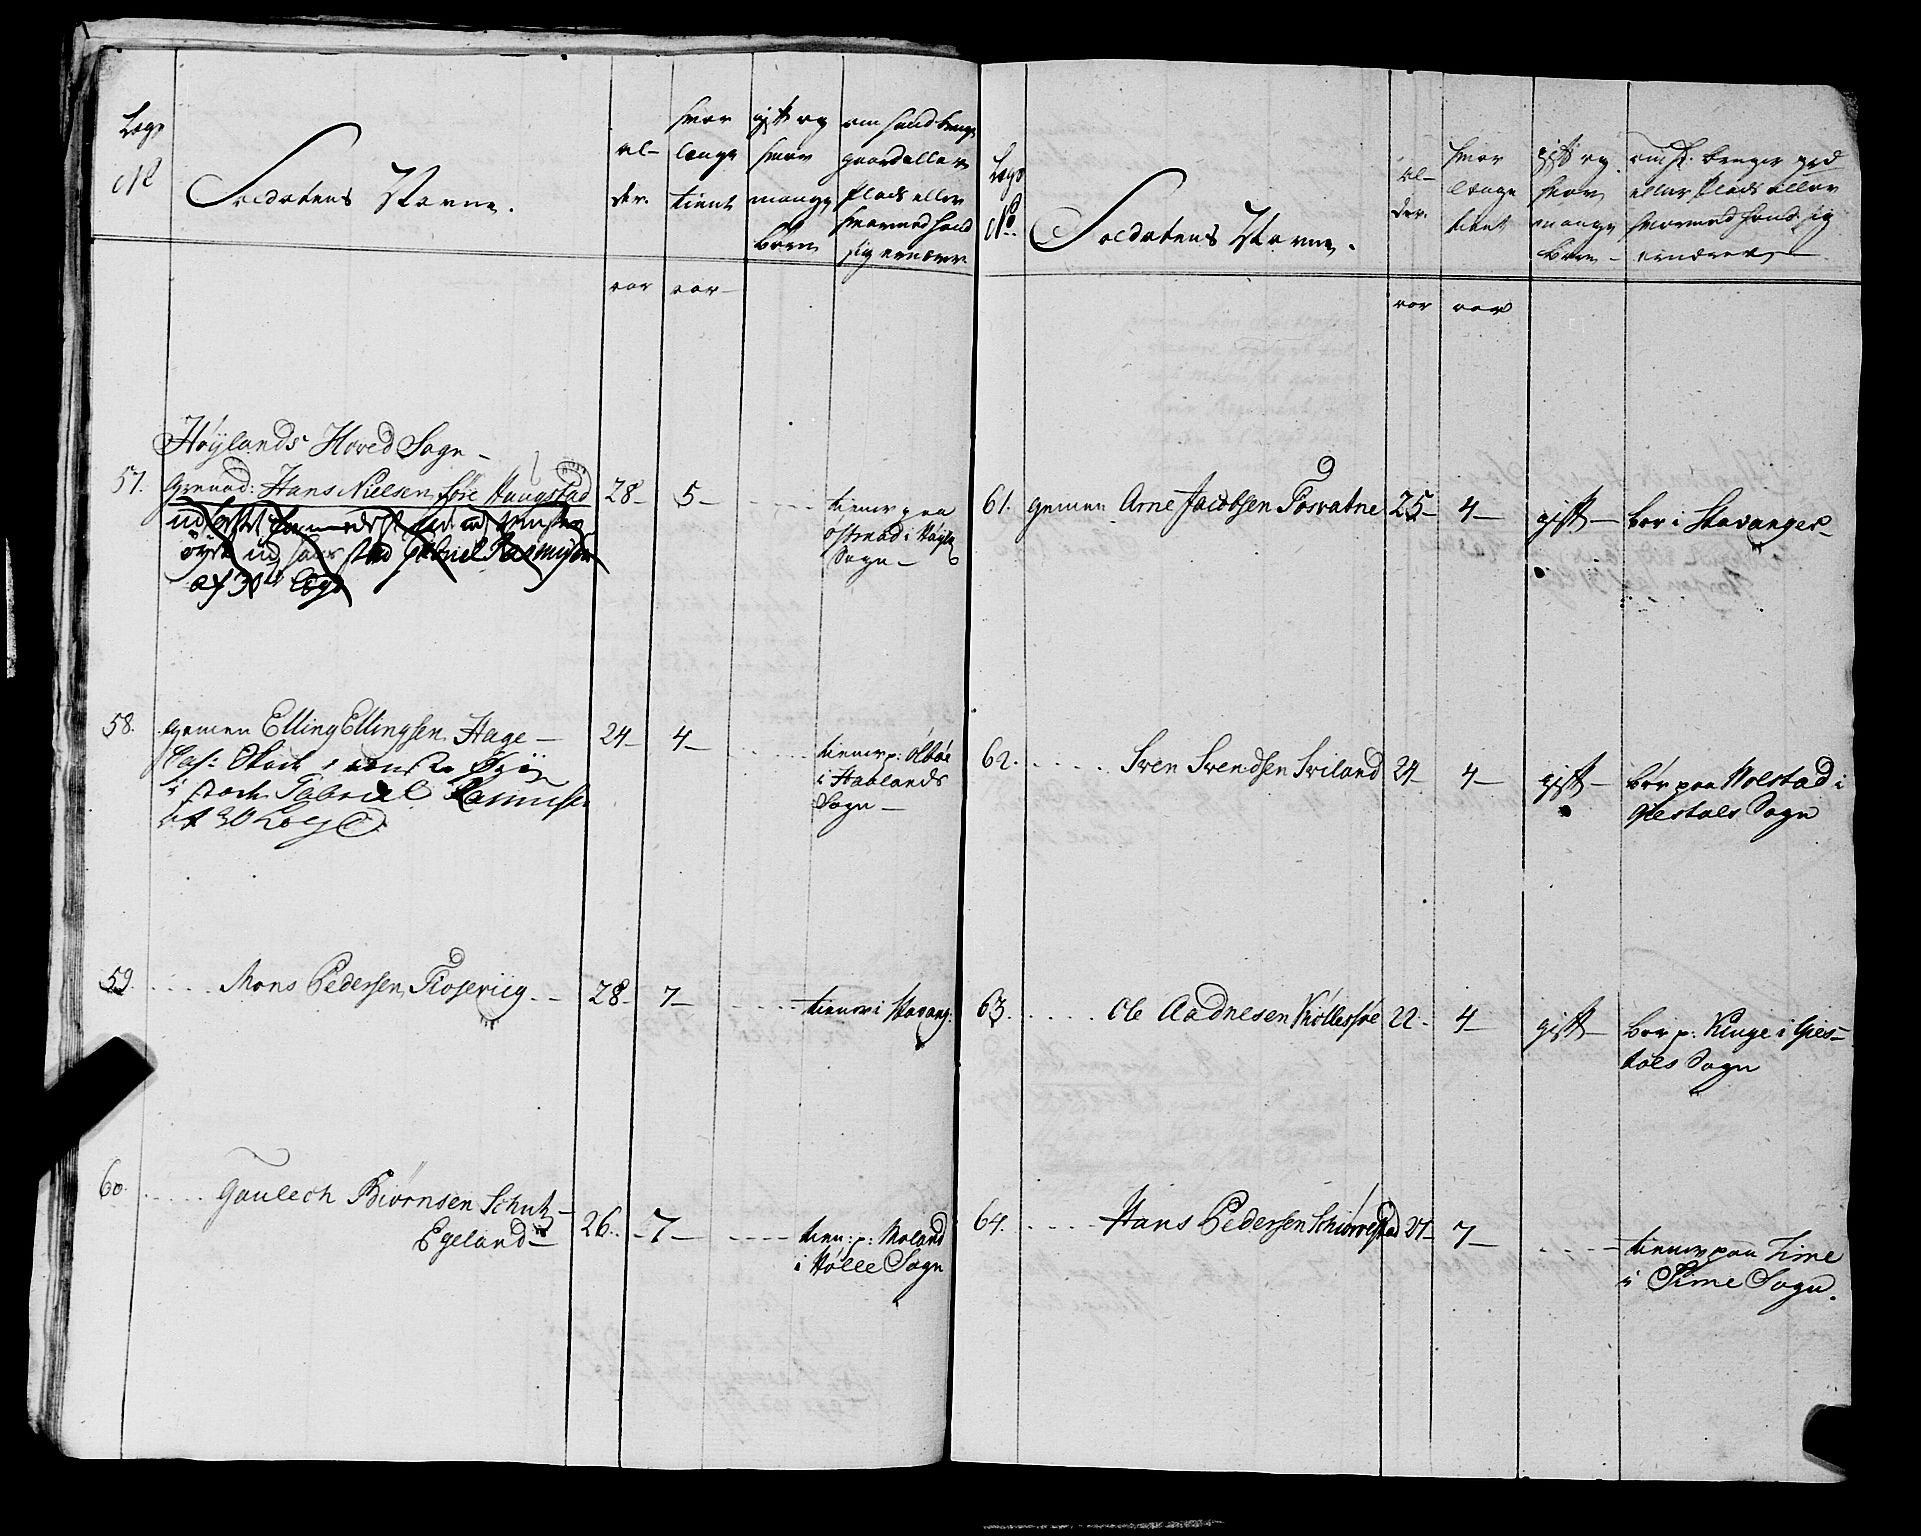 Legd
No
Soldatens Navne.
al-
der.
hvor
længe
tient
gift og
hvor
mange
børn
om hand bruger
gaard eller
Plads eller
hvormed hand
sig ernærer
aar
aar
Høylands Hoved Sogn -
57. Grenad: Hans Nielsen Søre Haugstad 28 - 5 -
tiener paa
i Høyl:
Sogn -
stad Gabriel Rasmusen
af 30te Legd
58. gemeen Elling Ellingsen Hage - 24 - 4 -
i stæd Gabriel Rasmusen
af 30 Legd
tiener p:
i Haalands
Sogn -
59. Mons Pedersen Fioseviig - 28 - 7 - tiener i Stavang:
60. Gaulech Biørnsen Schul-
Egeland - 26 - 7 -
tien: p: Moland
i Hølle Sogn
Legd
No.
Soldatens Navne.
al-
der.
hvor
længe
tient
gift og
hvor
mange
børn -
om h. bruger grd
eller Plads eller
hvormed hand sig
ernærer
aar
aar
61. gemeen Arne Jacobsen Fosvatne 25 - 4 - gift - boer i Stavanger -
62. Sven Svendsen Sviland 24 - 4 - gift - boer paa Molstad i
Giestals Sogn
63. Ole Aadnesen Kyllesøe 22 - 4 - gift - boer p: Kluge i Gies-
tals Sogn
64. Hans Pedersen Schiørrestad 27 - 7 - tiener paa Lime
i Time Sogn.